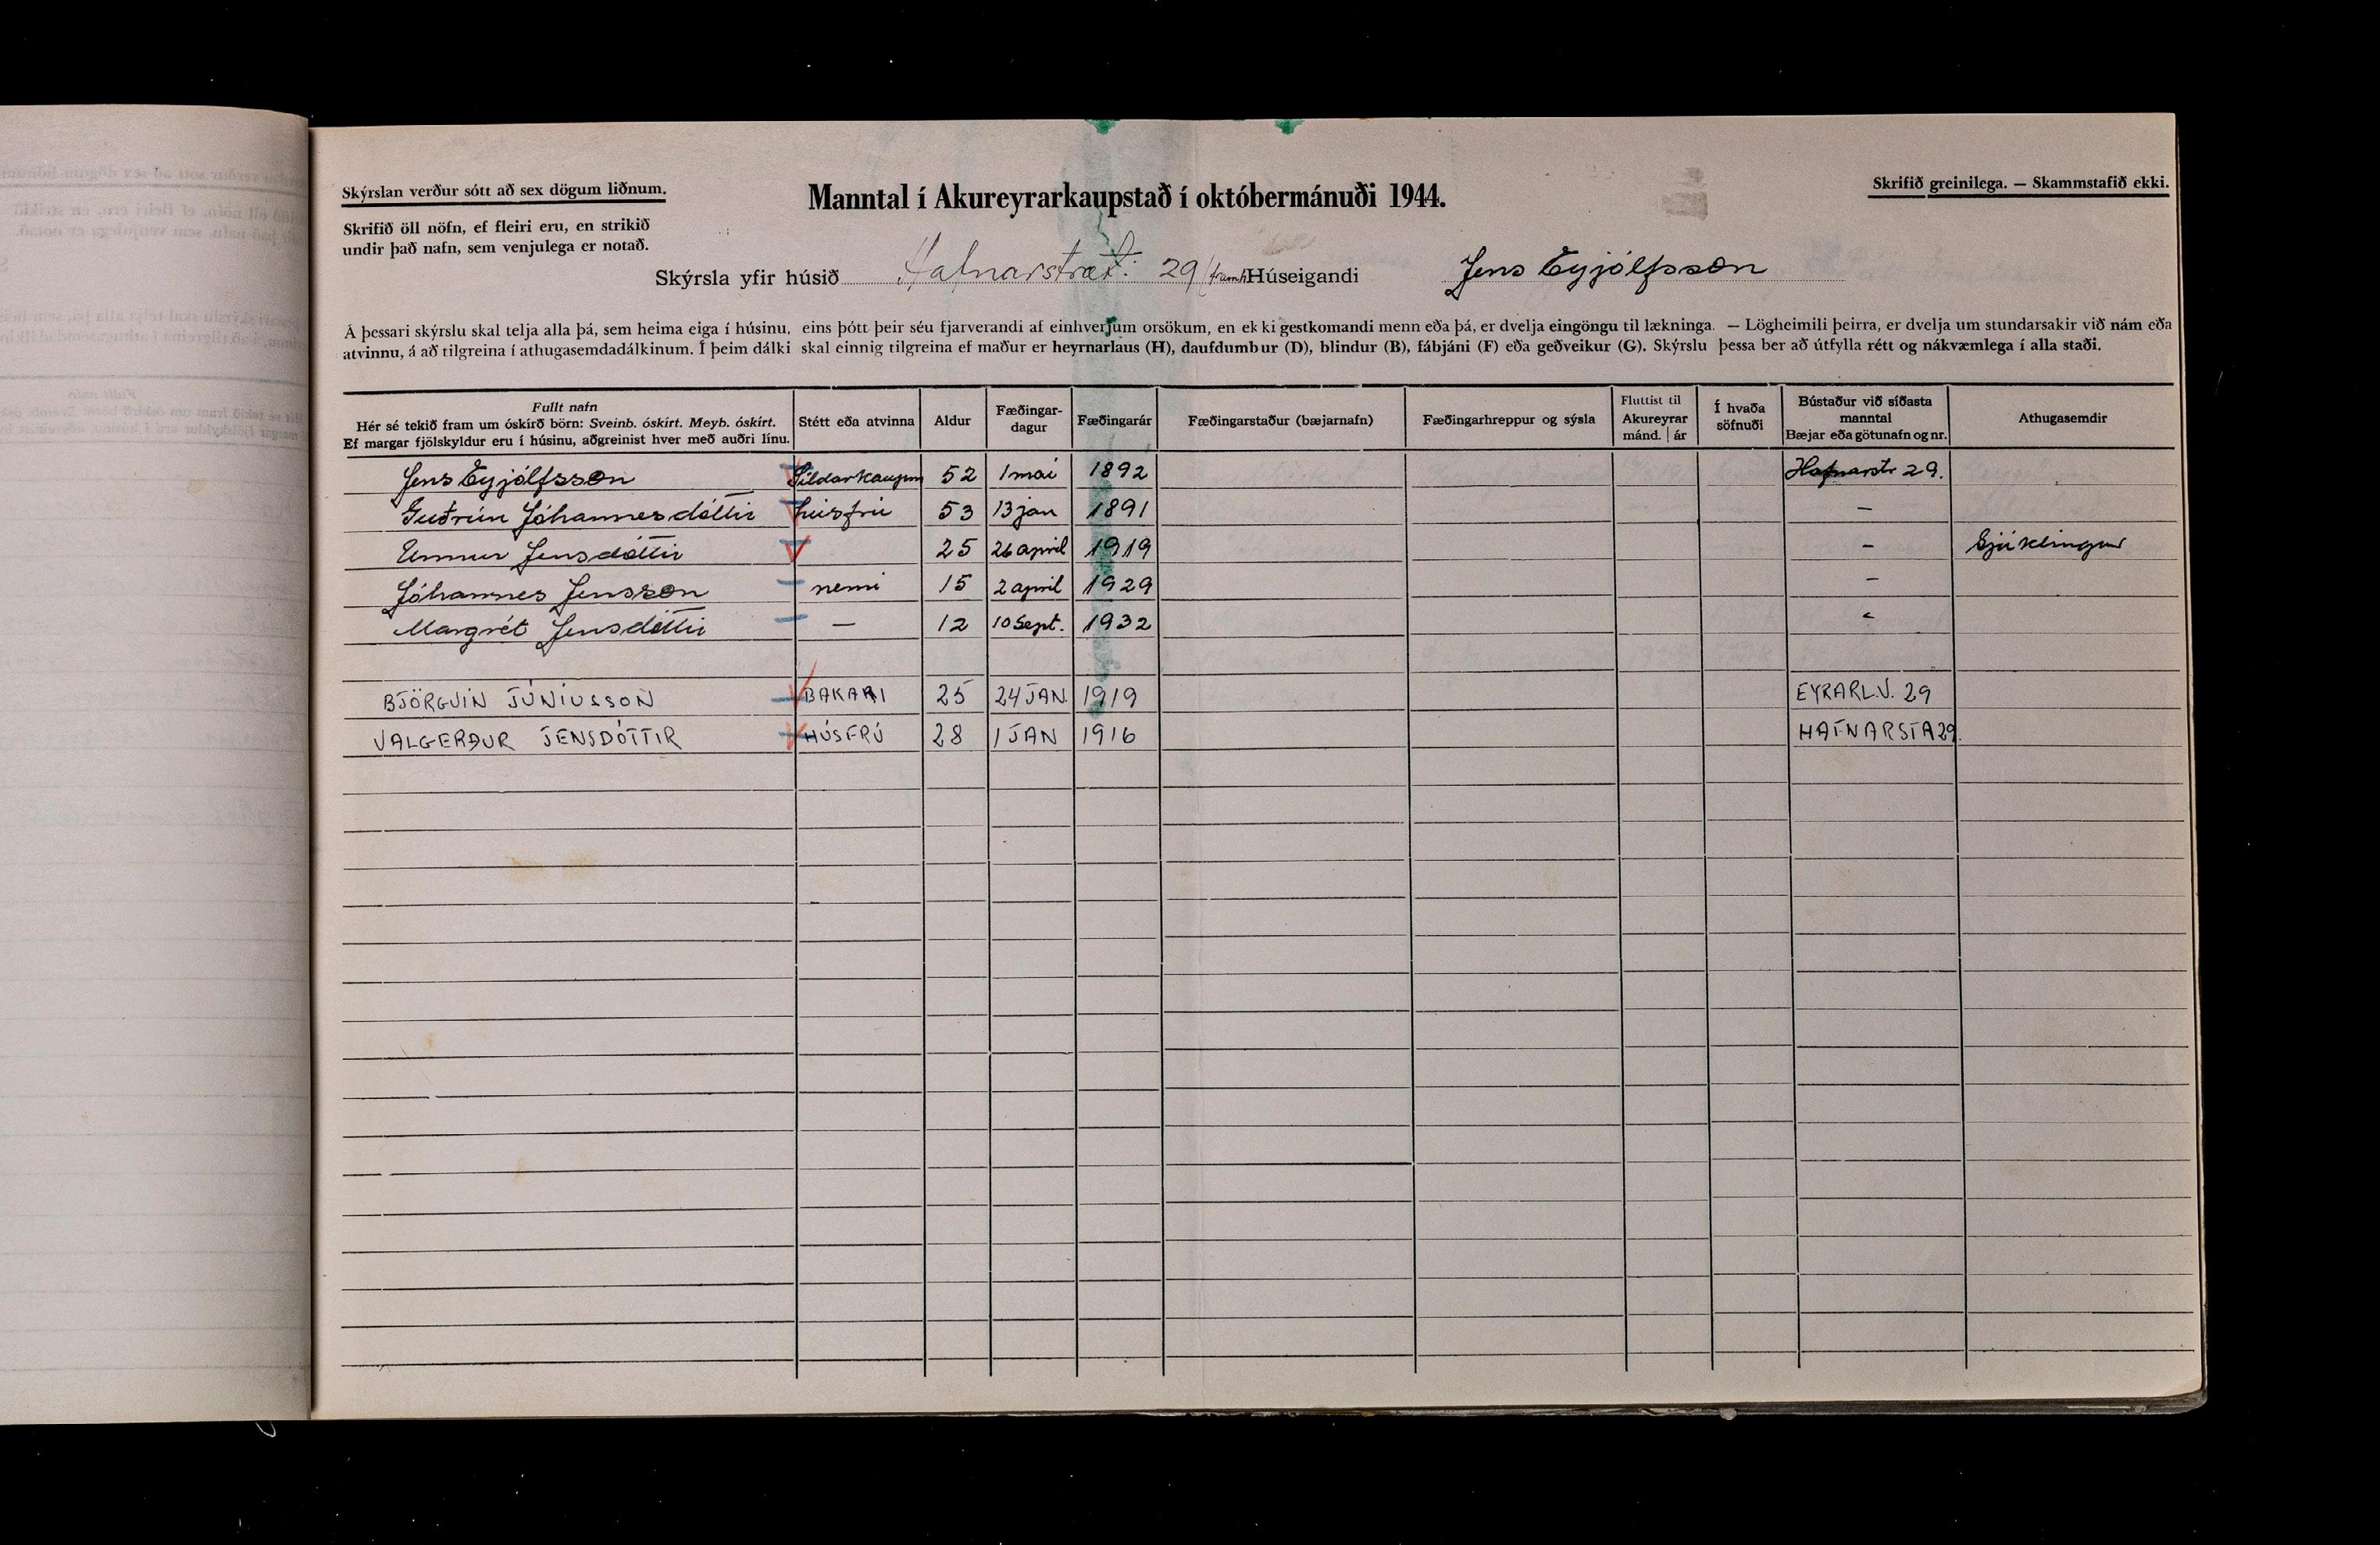 Skýrslan verður sótt að sex dögum liðnum.
Manntal í Akureyrarkaupstað í októbermánuði 1944.
Skrifið greinilega. — Skammstafið ekki.
Skrifið öll nöfn, ef fleiri eru, en strikið
undir það nafn, sem venjulega er notað.
Skýrsla yfir húsið Hafnarstræti 29 Húseigandi Jens Eyjólfsson
Á þessari skýrslu skal telja alla þá, sem heima eiga í húsinu, eins þótt þeir séu fjarverandi af einhverjum orsökum, en ekki gestkomandi menn eða þá, er dvelja eingöngu til lækninga. — Lögheimili þeirra, er dvelja um stundarsakir við nám eða
atvinnu, á að tilgreina í athugasemdadálkinum. Í þeim dálki skal einnig tilgreina ef maður er heyrnarlaus (H), daufdumbur (D), blindur (B), fábjáni (F) eða geðveikur (G). Skýrslu þessa ber að útfylla rétt og nákvæmlega í alla staði.
Fullt nafn
Hér sé tekið fram um óskírð börn: Sveinb. óskírt. Meyb. óskírt.
Ef margar fjölskyldur eru í húsinu, aðgreinist hver með auðri línu.
Stétt eða atvinna
Aldur
Fæðingar-
dagur
Fæðingarár
Fæðingarstaður (bæjarnafn)
Fæðingarhreppur og sýsla
Fluttist til
Akureyrar
mánd. | ár
Í hvaða
söfnuði
Bústaður við síðasta
manntal
Bæjar eða götunafn og nr.
Athugasemdir
Jens Eyjólfsson Síldarkaupm 52 1 maí 1892 Hafnarstr 29.
Guðrún Jóhannesdóttir húsfrú 53 13 jan 1891 —
Unnur Jensdóttir 25 26 apríl 1919 — Sjúklingur
Jóhannes Jensson nemi 15 2 apríl 1929 —
Margrét Jensdóttir — 12 10 Sept. 1932 -
BJÖRGVIN JÚNÍUSSON BAKARI 25 24 JAN. 1919 EYRARL.V. 29
VALGERÐUR JENSDÓTTIR HÚSFRÚ 28 1 JAN 1916 HAFNARSTR 29.